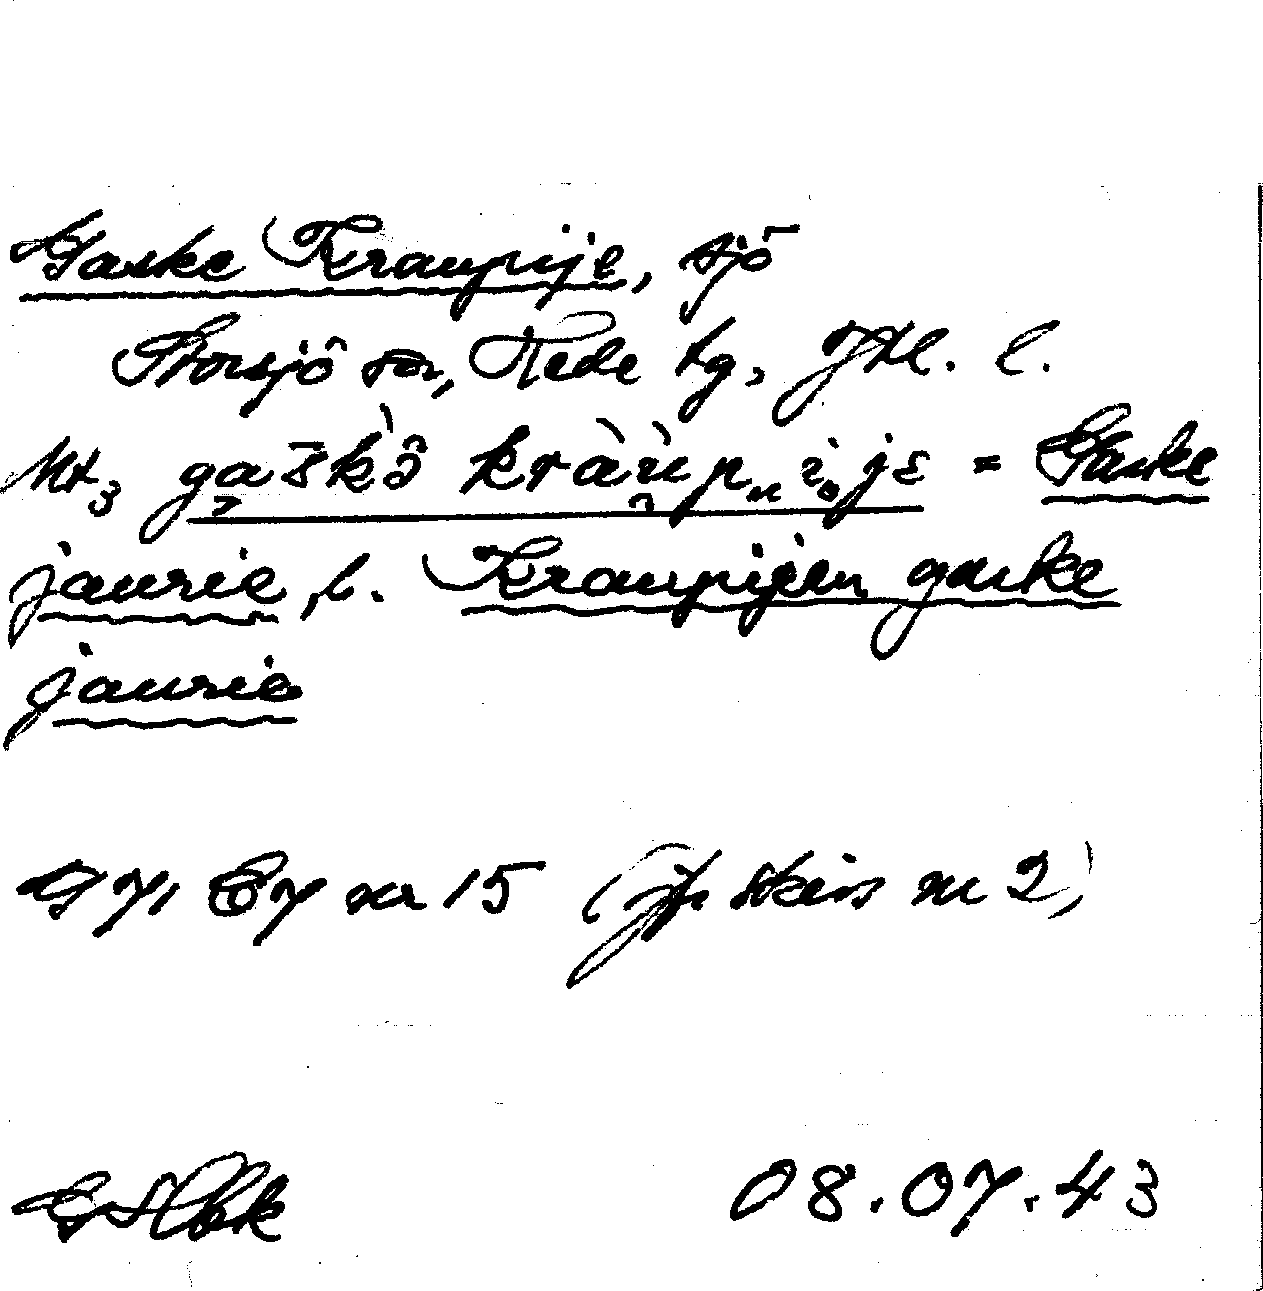 Gaske Kraupije, sjö
Storsjö sn, Rede tg, Jtl. l.
Ut₃ gaške̊ kràu̯pije = Gaske
jaurie, l. Kraupijen gaske
jaurie
nr 15 (Jfr skiss nr 2)
08.07.43